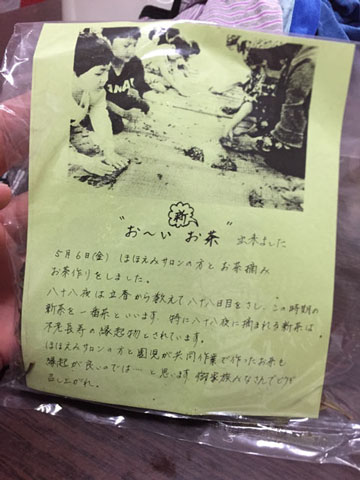 新
"お〜い お茶" 出来ました
5月6日(金) ほほえみサロンの方とお茶摘み
お茶作りをしました。
八十八夜は立春から数えて八十八日目をさし、この時期の
新茶を一番茶といいます。特に八十八夜に摘まれる新茶は
不老長寿の縁起物とされています。
ほほえみサロンの方と園児が共同作業で作ったお茶も
縁起が良いのでは〜と思います 御家族みなさんで
召し上がれ。